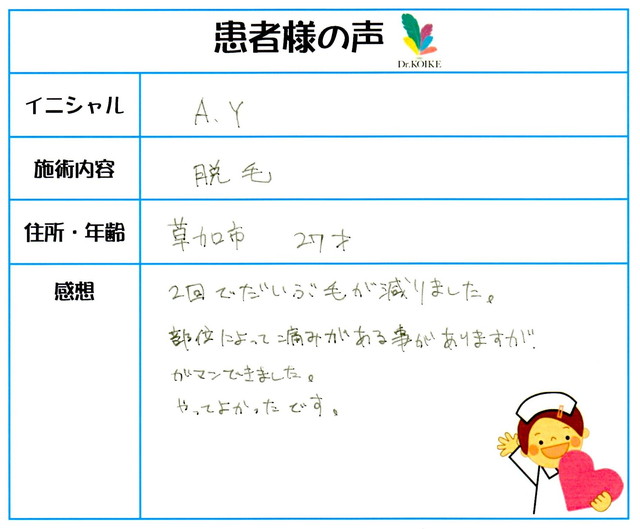 患者様の声
Dr.KOIKE
イニシャル
A.Y
施術内容
脱毛
住所・年齢
草加市 27才
感想
2回でだいぶ毛が減りました。
部位によって痛みがある事がありますが、
ガマンできました。
やってよかったです。